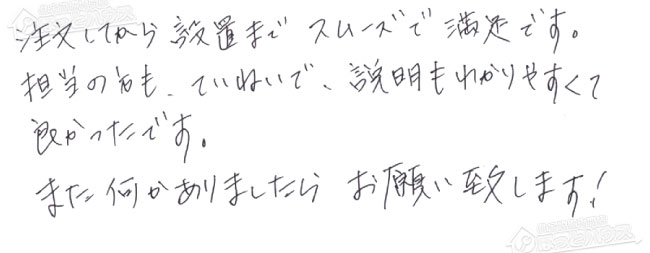 注文してから設置まで スムーズで 満足です。
担当の方も、ていねいで、説明もわかりやすくて
良かったです。
また何かありましたら お願い致します!